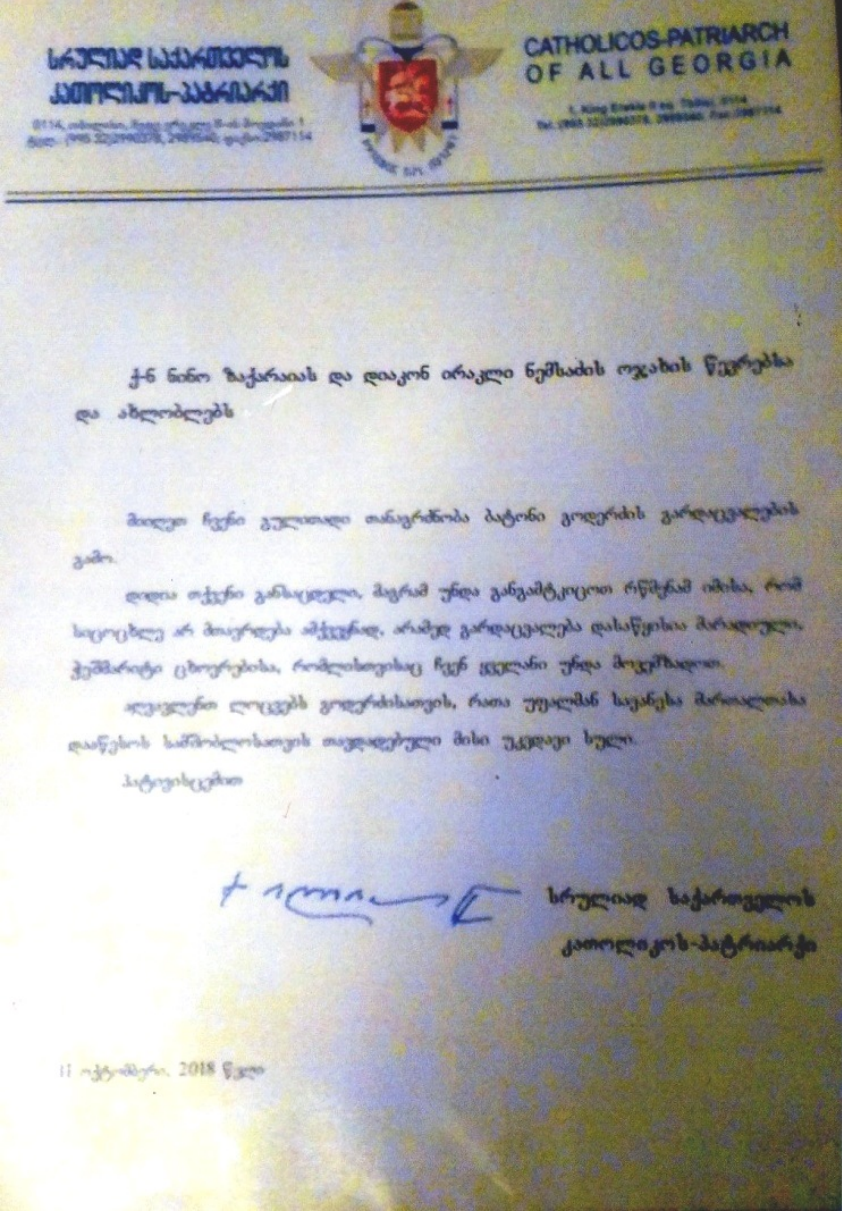 სრულიად საქართველოს
კათოლიკოს-პატრიარქი
0114, თბილისი, მეფე ერეკლე II-ის მოედანი 1
ტელ.: (995 32)2990378, 2989540; ფაქსი:2987114
CATHOLICOS-PATRIARCH
OF ALL GEORGIA
1, King Erekle II sq. Tbilisi, 0114
Tel.: (995 32)2990378, 2989540; Fax:2987114
ქ-ნ ნინო ზაქარაიას და დიაკონ ირაკლი ნემსაძის ოჯახის წევრებსა
და ახლობლებს
მიიღეთ ჩვენი გულითადი თანაგრძნობა ბატონი გოდერძის გარდაცვალების
გამო.
დიდია თქვენი განსაცდელი, მაგრამ უნდა განგამტკიცოთ რწმენამ იმისა, რომ
სიცოცხლე არ მთავრდება ამქვეყნად, არამედ გარდაცვალება დასაწყისია მარადიული,
ჭეშმარიტი ცხოვრებისა, რომლისთვისაც ჩვენ ყველანი უნდა მოვემზადოთ.
აღვავლენთ ლოცვებს გოდერძისათვის, რათა უფალმან სავანესა მართალთასა
დააწესოს სამშობლოსათვის თავდადებული მისი უკვდავი სული.
პატივისცემით
სრულიად საქართველოს
კათოლიკოს-პატრიარქი
11 ოქტომბერი, 2018 წელი